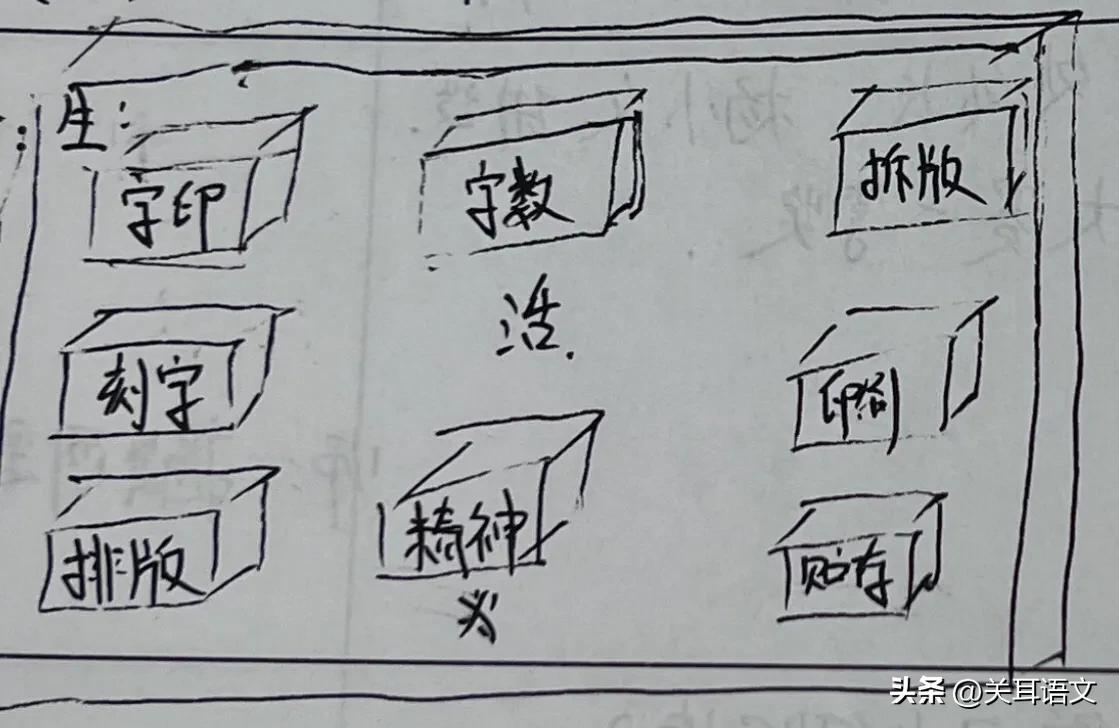 生:
字印 字教 拆版
活.
刻字 印刷
精神
排版 贮存
头条 @关耳语文